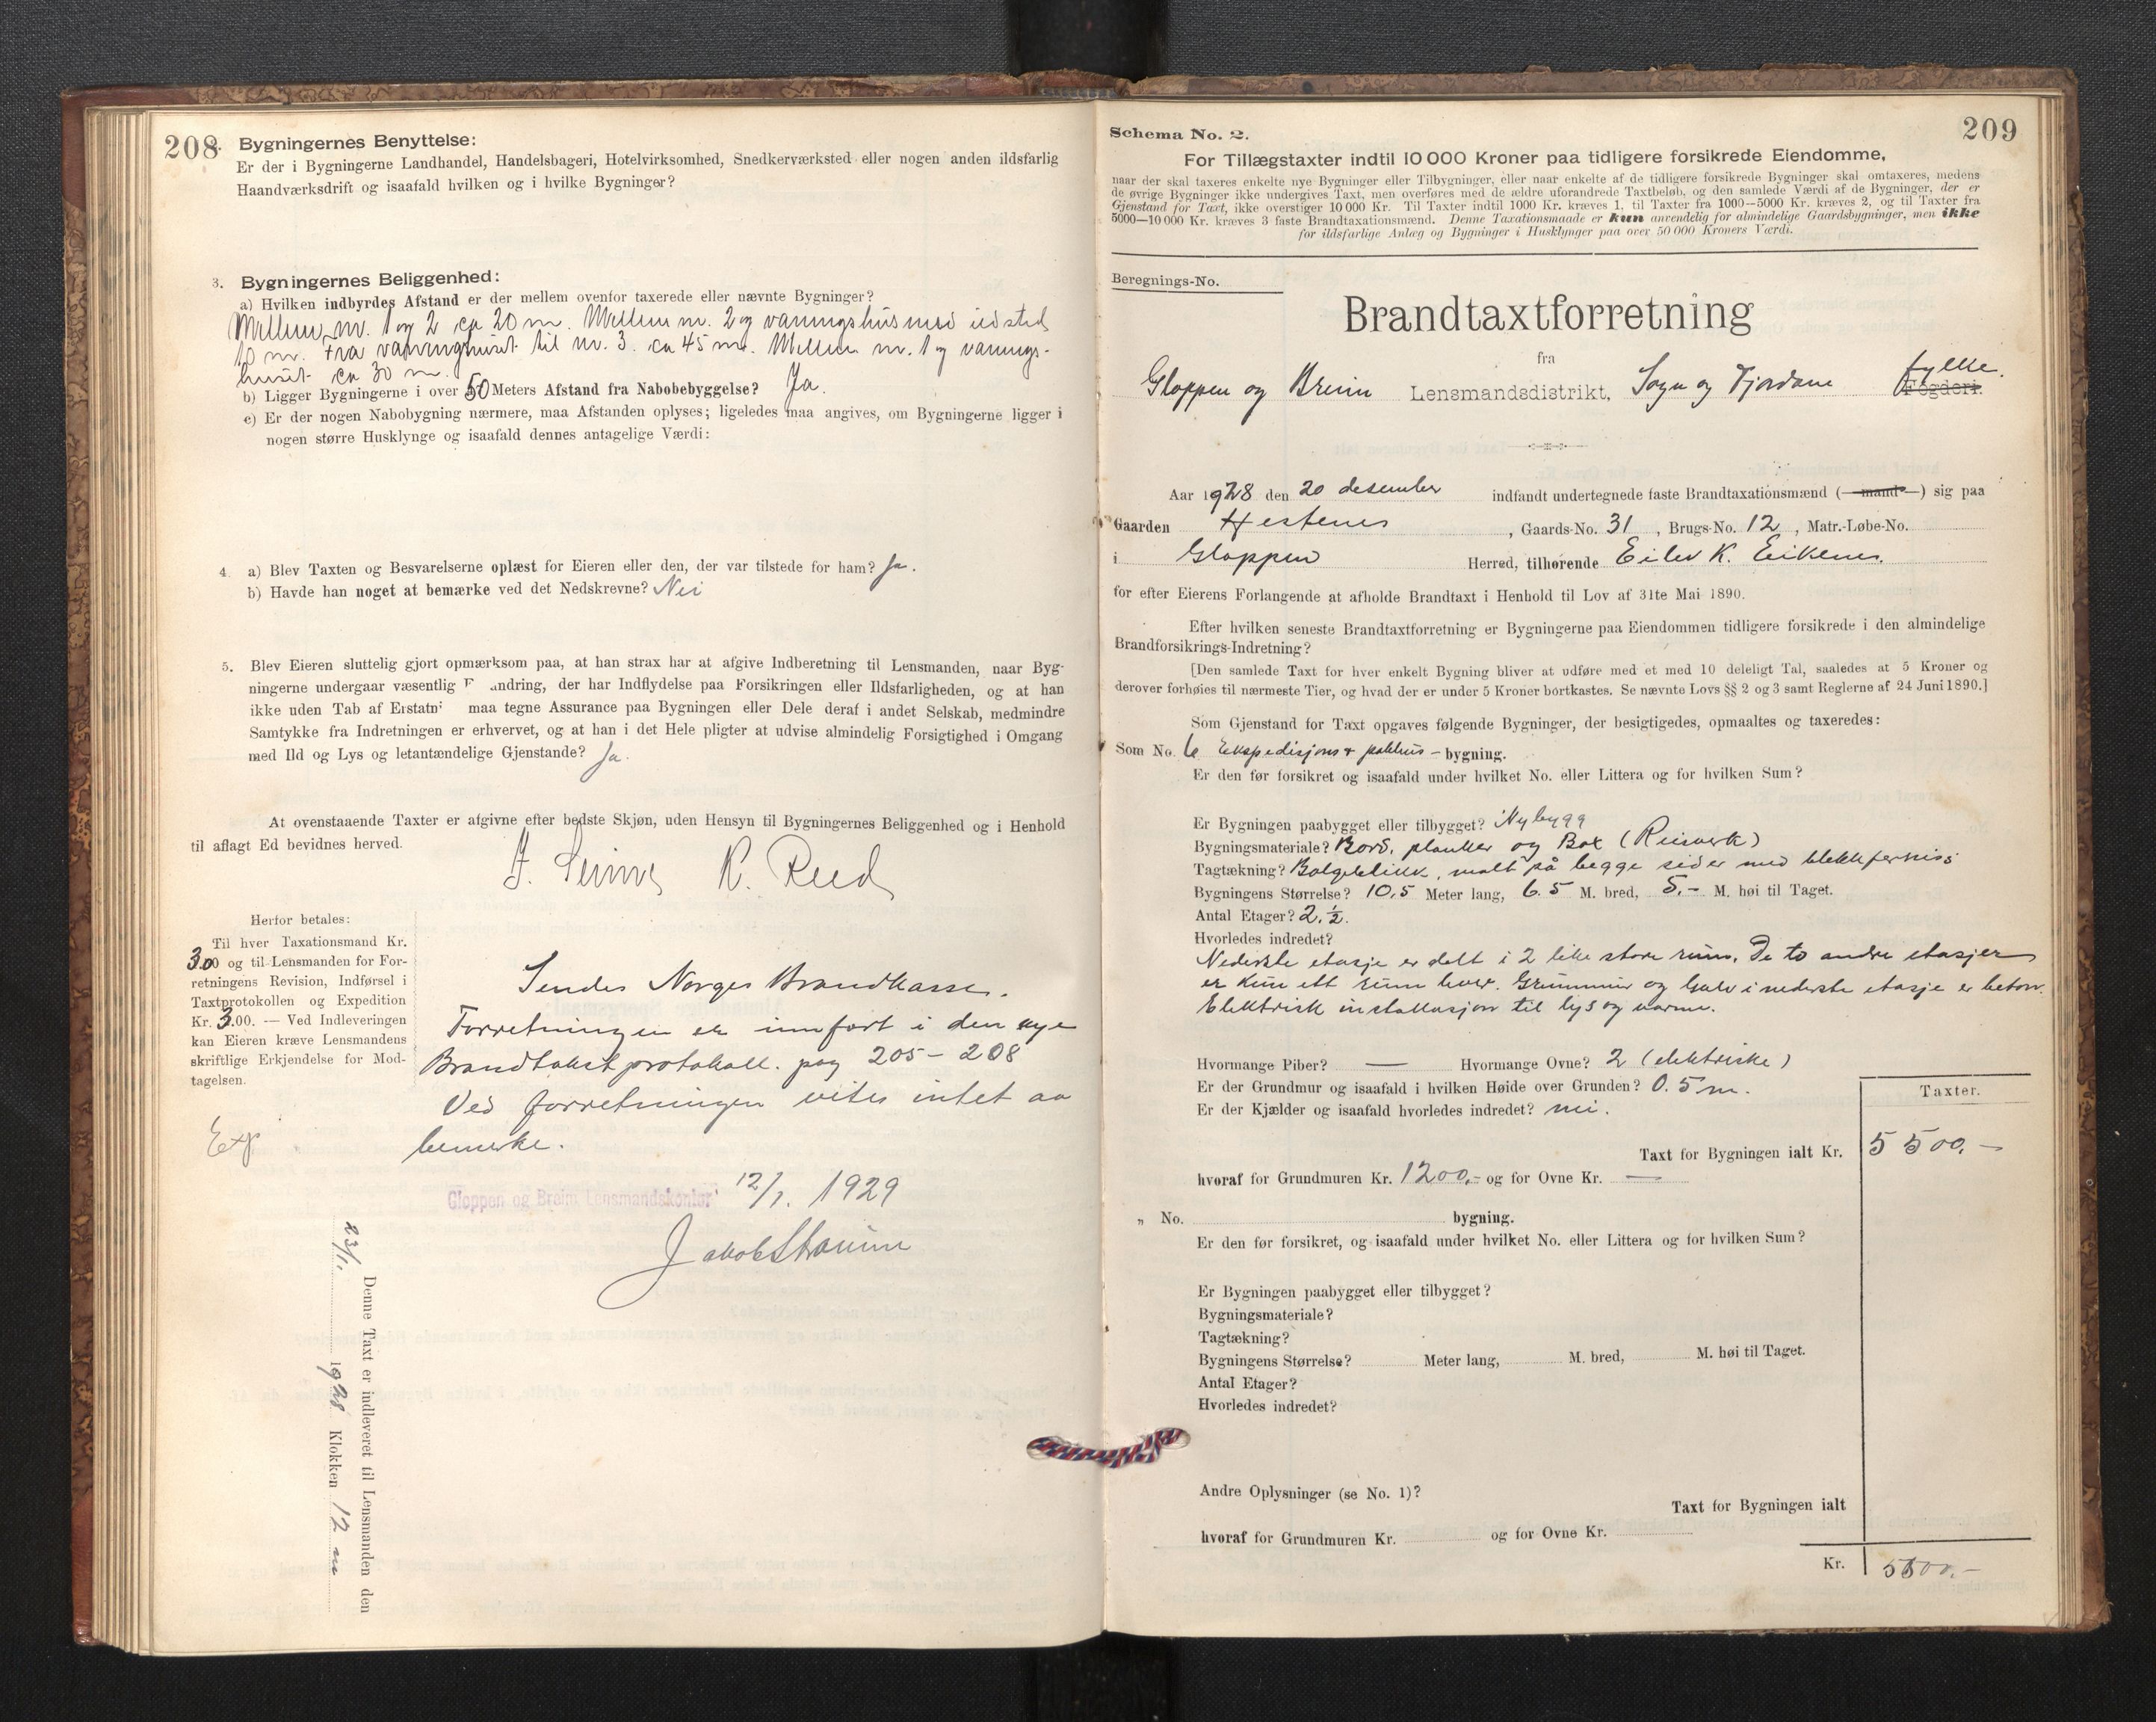 208
2. Bygningernes Benyttelse:
Er der i Bygningerne Landhandel, Handelsbageri, Hotelvirksomhed, Snedkerværksted eller nogen anden ildsfarlig
Haandværksdrift og isaafald hvilken og i hvilke Bygninger?
3. Bygningernes Beliggenhed:
a) Hvilken indbyrdes Afstand er der mellem ovenfor taxerede eller nævnte Bygninger?
Mellem nr. 1 og 2 ca 20 m. Mellem nr. 2 og vaningshus med ildsted
10 m. Fra vaningshuset til nr. 3. ca 45 m. Mellem nr. 1 og vanings-
huset ca 30 m.
b) Ligger Bygningerne i over 50 Meters Afstand fra Nabobebyggelse? Ja.
c) Er der nogen Nabobygning nærmere, maa Afstanden oplyses; ligeledes maa angives, om Bygningerne ligger i
nogen større Husklynge og isaafald dennes antagelige Værdi:
4. a) Blev Taxten og Besvarelserne oplæst for Eieren eller den, der var tilstede for ham? Ja.
b) Havde han noget at bemærke ved det Nedskrevne? Nei
5. Blev Eieren sluttelig gjort opmærksom paa, at han strax har at afgive Indberetning til Lensmanden, naar Byg-
ningerne undergaar væsentlig F andring, der har Indflydelse paa Forsikringen eller Ildsfarligheden, og at han
ikke uden Tab af Erstatn maa tegne Assurance paa Bygningen eller Dele deraf i andet Selskab, medmindre
Samtykke fra Indretningen er erhvervet, og at han i det Hele pligter at udvise almindelig Forsigtighed i Omgang
med Ild og Lys og letantændelige Gjenstande? Ja.
At ovenstaaende Taxter er afgivne efter bedste Skjøn, uden Hensyn til Bygningernes Beliggenhed og i Henhold
til aflagt Ed bevidnes herved.
K. Reed
Herfor betales:
Til hver Taxationsmand Kr.
3.00 og til Lensmanden for For-
retningens Revision, Indførsel i
Taxtprotokollen og Expedition
Kr. 3.00. — Ved Indleveringen
kan Eieren kræve Lensmandens
skriftlige Erkjendelse for Mod-
tagelsen.
Exp
Sendes Norges Brandkasse.
Forretningen er innført i den nye
Brandtakstprotokoll. pag 205 - 208
Ved forretningen vites intet aa
bemerke.
Gloppen og Breim Lensmandskontor 12/1. 1929
Denne Taxt er indleveret til Lensmanden den
23/1. 1928 Klokken 12 m
209
Schema No. 2.
For Tillægstaxter indtil 10 000 Kroner paa tidligere forsikrede Eiendomme,
naar der skal taxeres enkelte nye Bygninger eller Tilbygninger, eller naar enkelte af de tidligere forsikrede Bygninger skal omtaxeres, medens
de øvrige Bygninger ikke undergives Taxt, men overføres med de ældre uforandrede Taxtbeløb, og den samlede Værdi af de Bygninger, der er
Gjenstand for Taxt, ikke overstiger 10 000 Kr. Til Taxter indtil 1000 Kr. kræves 1, til Taxter fra 1000—5000 Kr. kræves 2, og til Taxter fra
5000—10 000 Kr. kræves 3 faste Brandtaxationsmænd. Denne Taxationsmaade er kun anvendelig for almindelige Gaardsbygninger, men ikke
for ildsfarlige Anlæg og Bygninger i Husklynger paa over 50 000 Kroners Værdi.
Beregnings-No.
Brandtaxtforretning
fra
Gloppen og Breim Lensmandsdistrikt, Sogn og Fjordane fylke. Fogderi.
Aar 1928 den 20 desember indfandt undertegnede faste Brandtaxationsmænd (—mand—) sig paa
Gaarden Hestenes, Gaards-No. 31, Brugs-No. 12, Matr.-Løbe-No.
i Gloppen Herred, tilhørende Eilev K. Eikenes.
for efter Eierens Forlangende at afholde Brandtaxt i Henhold til Lov af 31te Mai 1890.
Efter hvilken seneste Brandtaxtforretning er Bygningerne paa Eiendommen tidligere forsikrede i den almindelige
Brandforsikrings-Indretning?
[Den samlede Taxt for hver enkelt Bygning bliver at udføre med et med 10 deleligt Tal, saaledes at 5 Kroner og
derover forhøies til nærmeste Tier, og hvad der er under 5 Kroner bortkastes. Se nævnte Lovs §§ 2 og 3 samt Reglerne af 24 Juni 1890.]
Som Gjenstand for Taxt opgaves følgende Bygninger, der besigtigedes, opmaaltes og taxeredes:
Som No. 6 Ekspedisjons & pakhus - bygning.
Er den før forsikret og isaafald under hvilket No. eller Littera og for hvilken Sum?
Er Bygningen paabygget eller tilbygget? Nybygg
Bygningsmateriale? Bord, planker og (Reisverk)
Tagtækning? Bølgeblikk, malt på begge sider med blekkferniss
Bygningens Størrelse? 10,5 Meter lang, 6.5 M. bred, 5,- M. høi til Taget.
Antal Etager? 2.½.
Hvorledes indredet?
Nederste etasje er delt i 2 like store rum. De to andre etasjer
er kun ett rum hver. Grunnmur og Gulv i nederste etasje er beton.
Elektrisk installasjon til lys og varme.
Hvormange Piber? — Hvormange Ovne? 2 (elektriske)
Er der Grundmur og isaafald i hvilken Høide over Grunden? 0.5 m.
Er der Kjælder og isaafald hvorledes indredet? nei.
Taxter.
Taxt for Bygningen ialt Kr. 5500,—
hvoraf for Grundmuren Kr. 1200,- og for Ovne Kr. —
„ No. bygning.
Er den før forsikret, og isaafald under hvilket No. eller Littera og for hvilken Sum?
Er Bygningen paabygget eller tilbygget?
Bygningsmateriale?
Tagtækning?
Bygningens Størrelse? Meter lang, M. bred, M. høi til Taget.
Antal Etager?
Hvorledes indredet?
Andre Oplysninger (se No. 1)?
Taxt for Bygningen ialt
hvoraf for Grundmuren Kr. og for Ovne Kr.
Kr. 5500.-